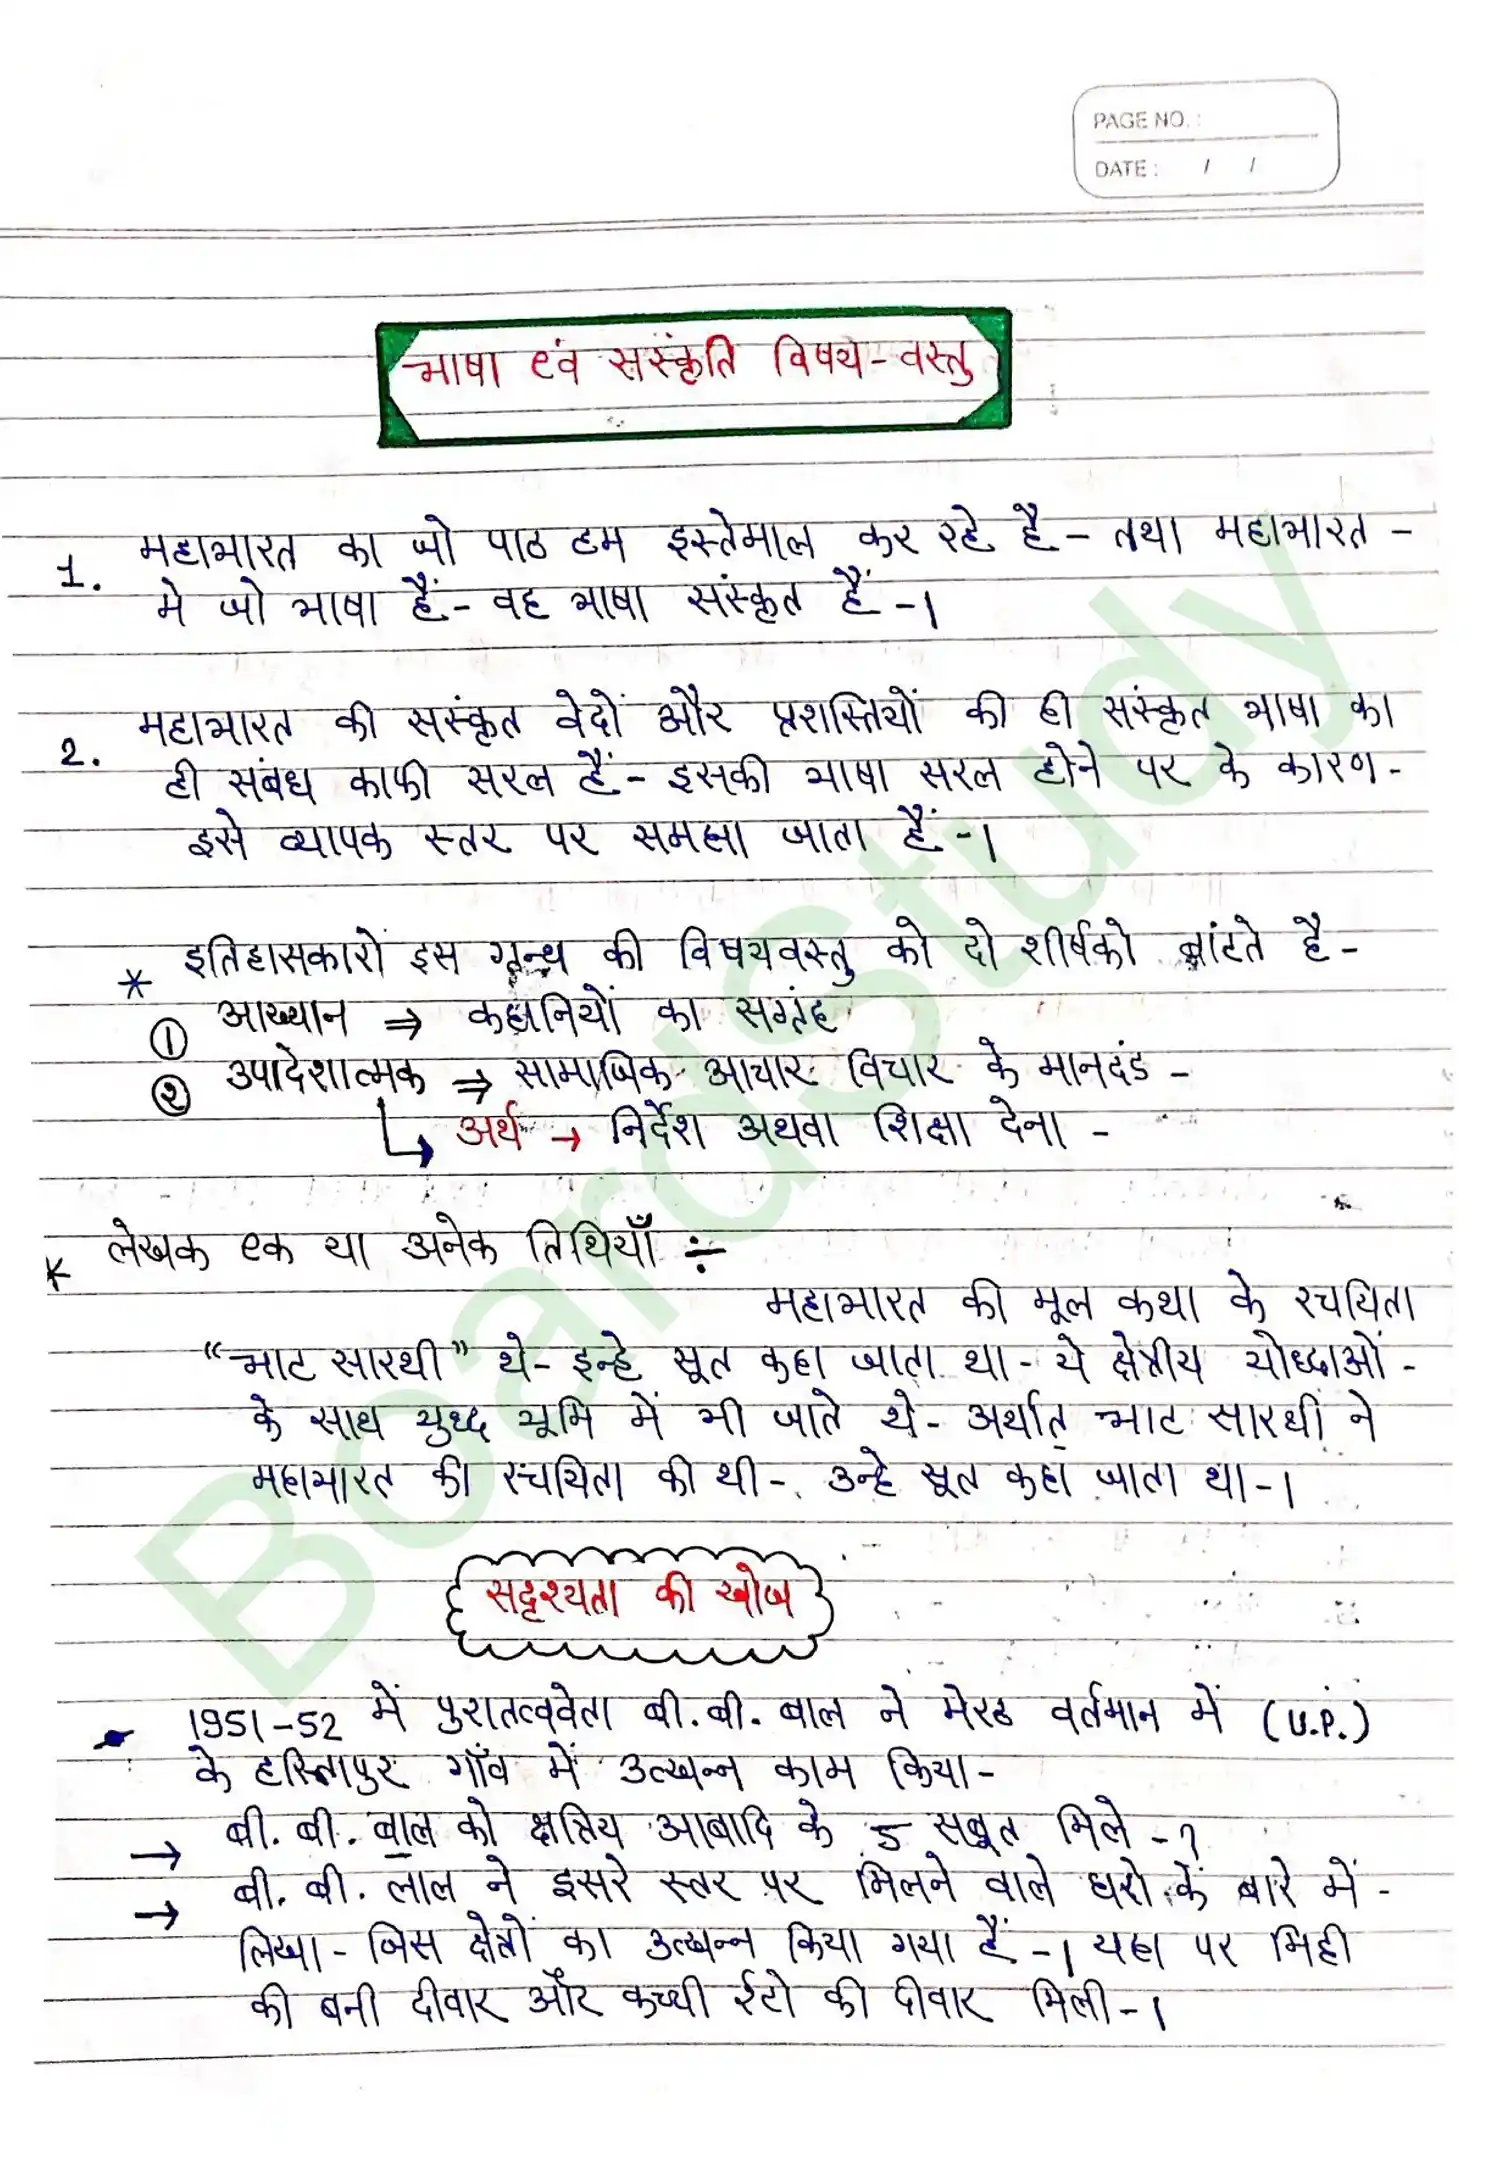 PAGE NO. :
DATE : / /
भाषा एवं संस्कृति विषय - वस्तु
1. महाभारत का जो पाठ हम इस्तेमाल कर रहे है - तथा महाभारत -
मे जो भाषा हैं - वह भाषा संस्कृत हैं -।
2. महाभारत की संस्कृत वेदों और प्रशस्तियों की ही संस्कृत भाषा का
ही संबंध काफी सरल हैं - इसकी भाषा सरल होने पर के कारण -
इसे व्यापक स्तर पर समझा जाता हैं -।
* इतिहासकारों इस ग्रन्थ की विषयवस्तु को दो शीर्षको बांटते है -
① आख्यान ⇒ कहानियों का सग्रंह
② उपादेशात्मक ⇒ सामाजिक आचार विचार के मानदंड -
↳ अर्थ → निर्देश अथवा शिक्षा देना -
* लेखक एक या अनेक तिथियाँ ÷
महाभारत की मूल कथा के रचयिता
“भाट सारथी” थे - इन्हे सूत कहा जाता था - ये क्षेत्रीय योध्दाओं -
के साथ युध्द भूमि में भी जाते थे - अर्थात् भाट सारथी ने
महाभारत की रचयिता की थी - उन्हे सूत कहा जाता था -।
सदृश्यता की खोज
1951-52 में पुरातत्ववेता बी. बी. बाल ने मेरठ वर्तमान में (U.P.)
के हस्तिापुर गाँव में उत्खन्न काम किया -
→ बी. बी. बाल को क्षत्रिय आबादि के 5 सबूत मिले -?
→ बी. बी. लाल ने इसरे स्तर पर मिलने वाले घरो के बारे में -
लिखा - जिस क्षेत्रों का उत्खन्न किया गया हैं -। यहा पर मिट्टी
की बनी दीवार और कच्ची ईटो की दीवार मिली -।
BoardStudy